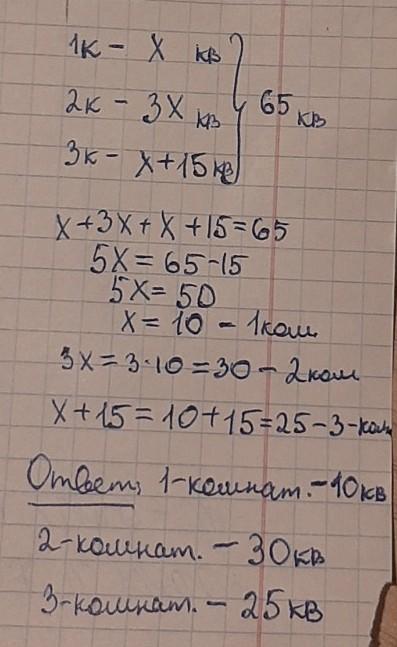 1к - х кв
2к - 3х кв } 65 кв
3к - х+15кв
х+3х+х+15=65
5х=65-15
5х=50
х=10 - 1ком
3х=3·10=30-2ком
х+15=10+15=25-3-ком
Ответ, 1-комнат.-10кв
2-комнат. - 30кв
3-комнат. - 25кв